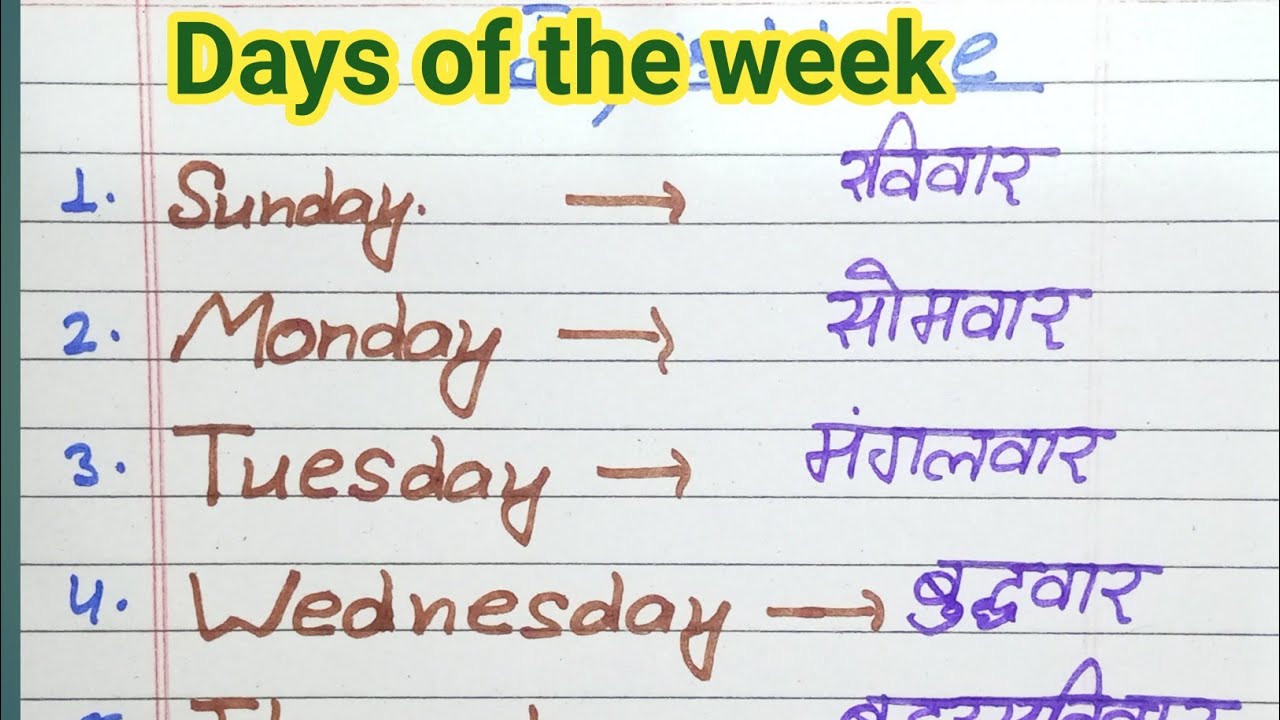 Days of the week
1. Sunday. → रविवार
2. Monday → सोमवार
3. Tuesday → मंगलवार
4. Wednesday → बुद्धवार